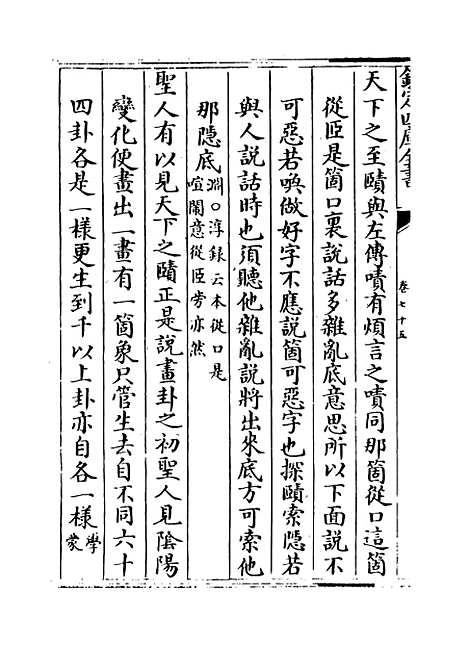 欽定四庫全書
卷七十五
天下之至賾與左傳嘖有煩言之嘖同那箇從口這箇
從𦣞是箇口裏說話多雜亂底意思所以下面說不
可惡若喚做好字不應說箇可惡字也探賾索隱若
與人說話時也須聽他雜亂說將出來底方可索他
那隱底淵○淳錄云本從口是
喧鬧意從𦣞旁亦然
聖人有以見天下之賾正是說畫卦之初聖人見陰陽
變化便畫出一畫有一箇象只管生去自不同六十
四卦各是一様更生到千以上卦亦自各一様學
蒙